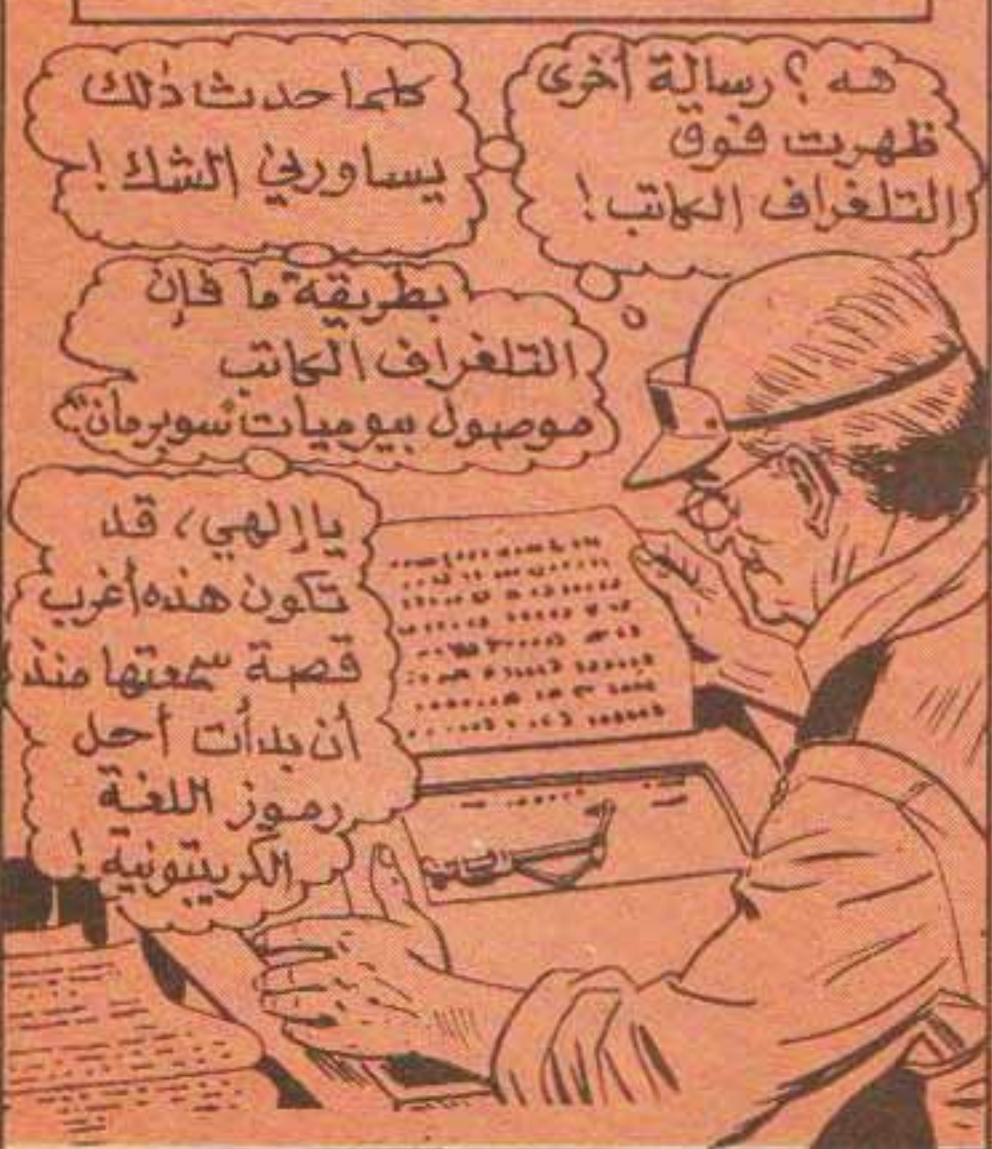 هه ؟ رسالة أخرى
ظهرت فوق
التلغراف الكاتب !
كلما حدث ذلك
يساورني الشك !
بطريقة ما فإن
التلغراف الكاتب
موصول بيوميات "سوبرمان"
يا إلهي ، قد
تكون هذه أغرب
قصة سمعتها منذ
أن بدأت أحل
رموز اللغة
الكريبتونية !